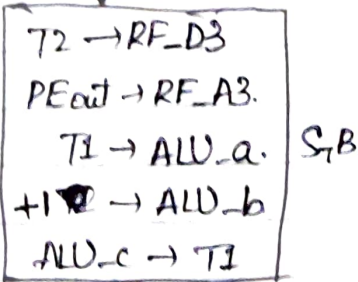 T2 → RF_D3
PEout → RF_A3.
T1 → ALU_a.
+1 → ALU_b
ALU_c → T1